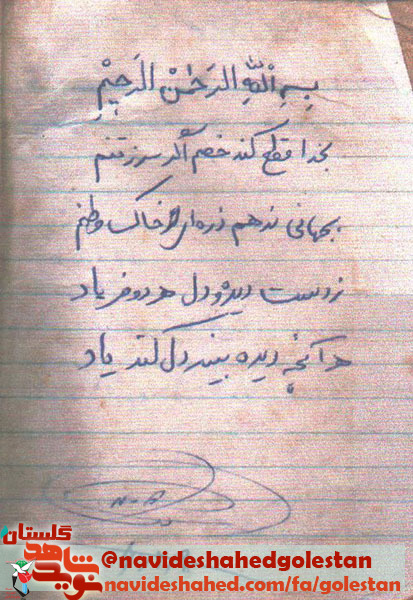 بسم الله الرحمن الرحیم
بخدا قطع کند خصم اگر سر ز تنم
بجهانی ندهم ذره ای از خاک وطنم
ز دست دیده و دل هر دو فریاد
هر آنچه دیده بیند دل کند یاد
گلستان
نوید شاهد
@navideshahedgolestan
navideshahed.com/fa/golestan